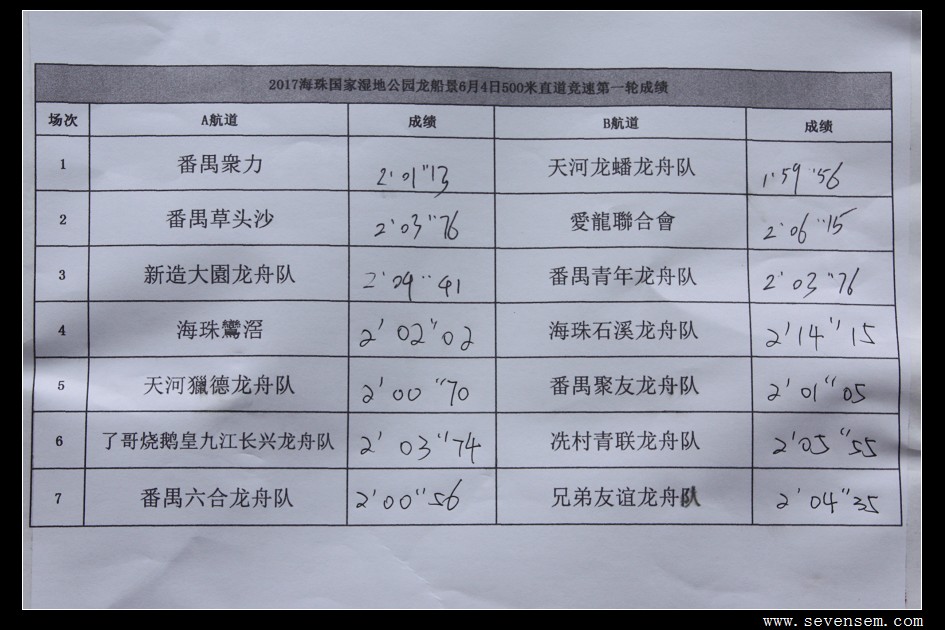 2017海珠国家湿地公园龙船景6月4日500米直道竞速第一轮成绩
场次 A航道 成绩 B航道 成绩
1 番禺衆力 2'01"13 天河龙蟠龙舟队 1'59"56
2 番禺草头沙 2'03"76 愛龍聯合會 2'06"15
3 新造大園龙舟队 2'09"41 番禺青年龙舟队 2'03"76
4 海珠鸞滘 2'02"02 海珠石溪龙舟队 2'14"15
5 天河獵德龙舟队 2'00"70 番禺聚友龙舟队 2'01"05
6 了哥烧鹅皇九江长兴龙舟队 2'03"74 冼村青联龙舟队 2'05"55
7 番禺六合龙舟队 2'00"56 兄弟友谊龙舟队 2'04"35
www.sevensem.com